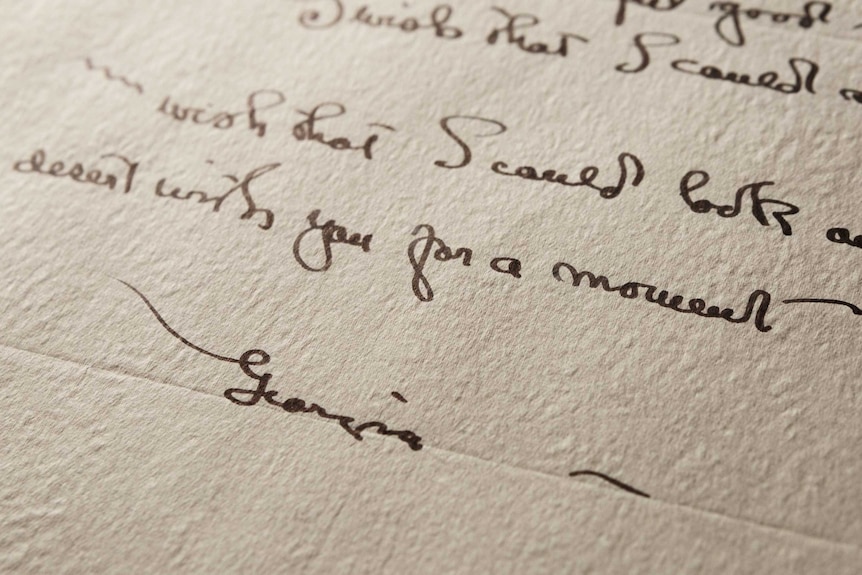 good
I wish that I could
~~ wish that I could look
desert with you for a moment —
Georgia